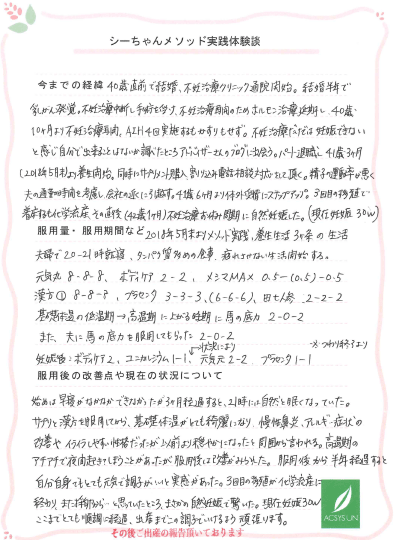 シーちゃんメソッド実践体験談
今までの経緯 40歳直前で結婚、不妊治療クリニック通院開始。結婚半年で
乳がん発覚。不妊治療中断し手術を受け、不妊治療再開のためホルモン治療延期し、40歳
10ヶ月より不妊治療再開。AIH4回実施するもかすりもせず。不妊治療だけでは妊娠できない
と感じ自分で出来ることはないか調べたところアドバイザーさんのブログに出会う。パート退職し41歳3ヶ月
(2018年5月)より養生開始。同時にサプリメント購入、割り込み電話相談対応をして頂く。精子の運動率が悪く
夫の通勤時間を考慮し会社の近くに引越す。41歳6ヶ月より体外受精にステップアップ。3回目の移植で
着床するも化学流産、その直後(42歳1ヶ月)不妊治療お休み期間に自然妊娠した。(現在妊娠30W)
服用量・服用期間など 2018年5月よりメソッド実践、養生生活3ヶ条の生活
夫婦で20-21時就寝、タンパク質多めの食事、疲れさせない生活開始する。
元気丸 8-8-8、ボディケア 2-2、メシマMAX 0.5-(0.5)-0.5
漢方① 8-8-8、プラセンタ 3-3-3、(6-6-6)、田七人参 2-2-2
基礎体温の低温期→高温期に上がる時期に馬の底力 2-0-2
また、夫に馬の底力を服用してもらった 2-0-2
状況により
※つわり終了より
妊娠後:ボディケア2、ユニカルシウム1-1、元気元2-2 プラセンタ1-1
服用後の改善点や現在の状況について
始めは早寝がなかなかできなかったが3ヶ月経過すると、21時には自然と眠くなっていた。
サプリと漢方を服用してから、基礎体温がとても綺麗になり、慢性鼻炎、アレルギー症状の
改善やイライラしやすい性格だったが以前より穏やかになったと周囲から言われる。高温期の
アチアチで夜間起きてしまうことがあったが服用後は改善がみられた。服用後から半年経過すると
自分自身でもとても元気で調子がいいと実感があった。3回目の移植が化学流産に
終わり、また移植か…と思っていたところ、まさかの自然妊娠で驚いた。現在妊娠30W
ここまでとても順調に経過、出産までこの調子でいけるよう頑張ります。
ACSYS UN
その後ご出産の報告頂いております